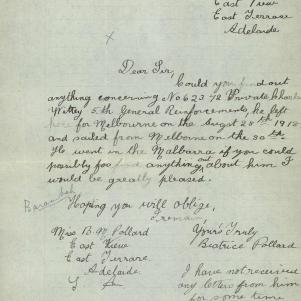 East View
East Terrace
Adelaide
x
Dear Sir,
Could you find out
anything concerning No 6 23 72 Private Charles
5th General Reinforcements, he left
here for Melbourne on the August 28th 1918
and sailed from Melborne on the 30th
He went in the Malbarra if you could
possibly foo find anything out about him I
would be greatly pleased.
Hoping you will oblige,
I remain
Miss B. M. Pollard Your's Truly
East View Beatrice Pollard
East Terrace
Adelaide I have not received
S A any letters from him
for some time